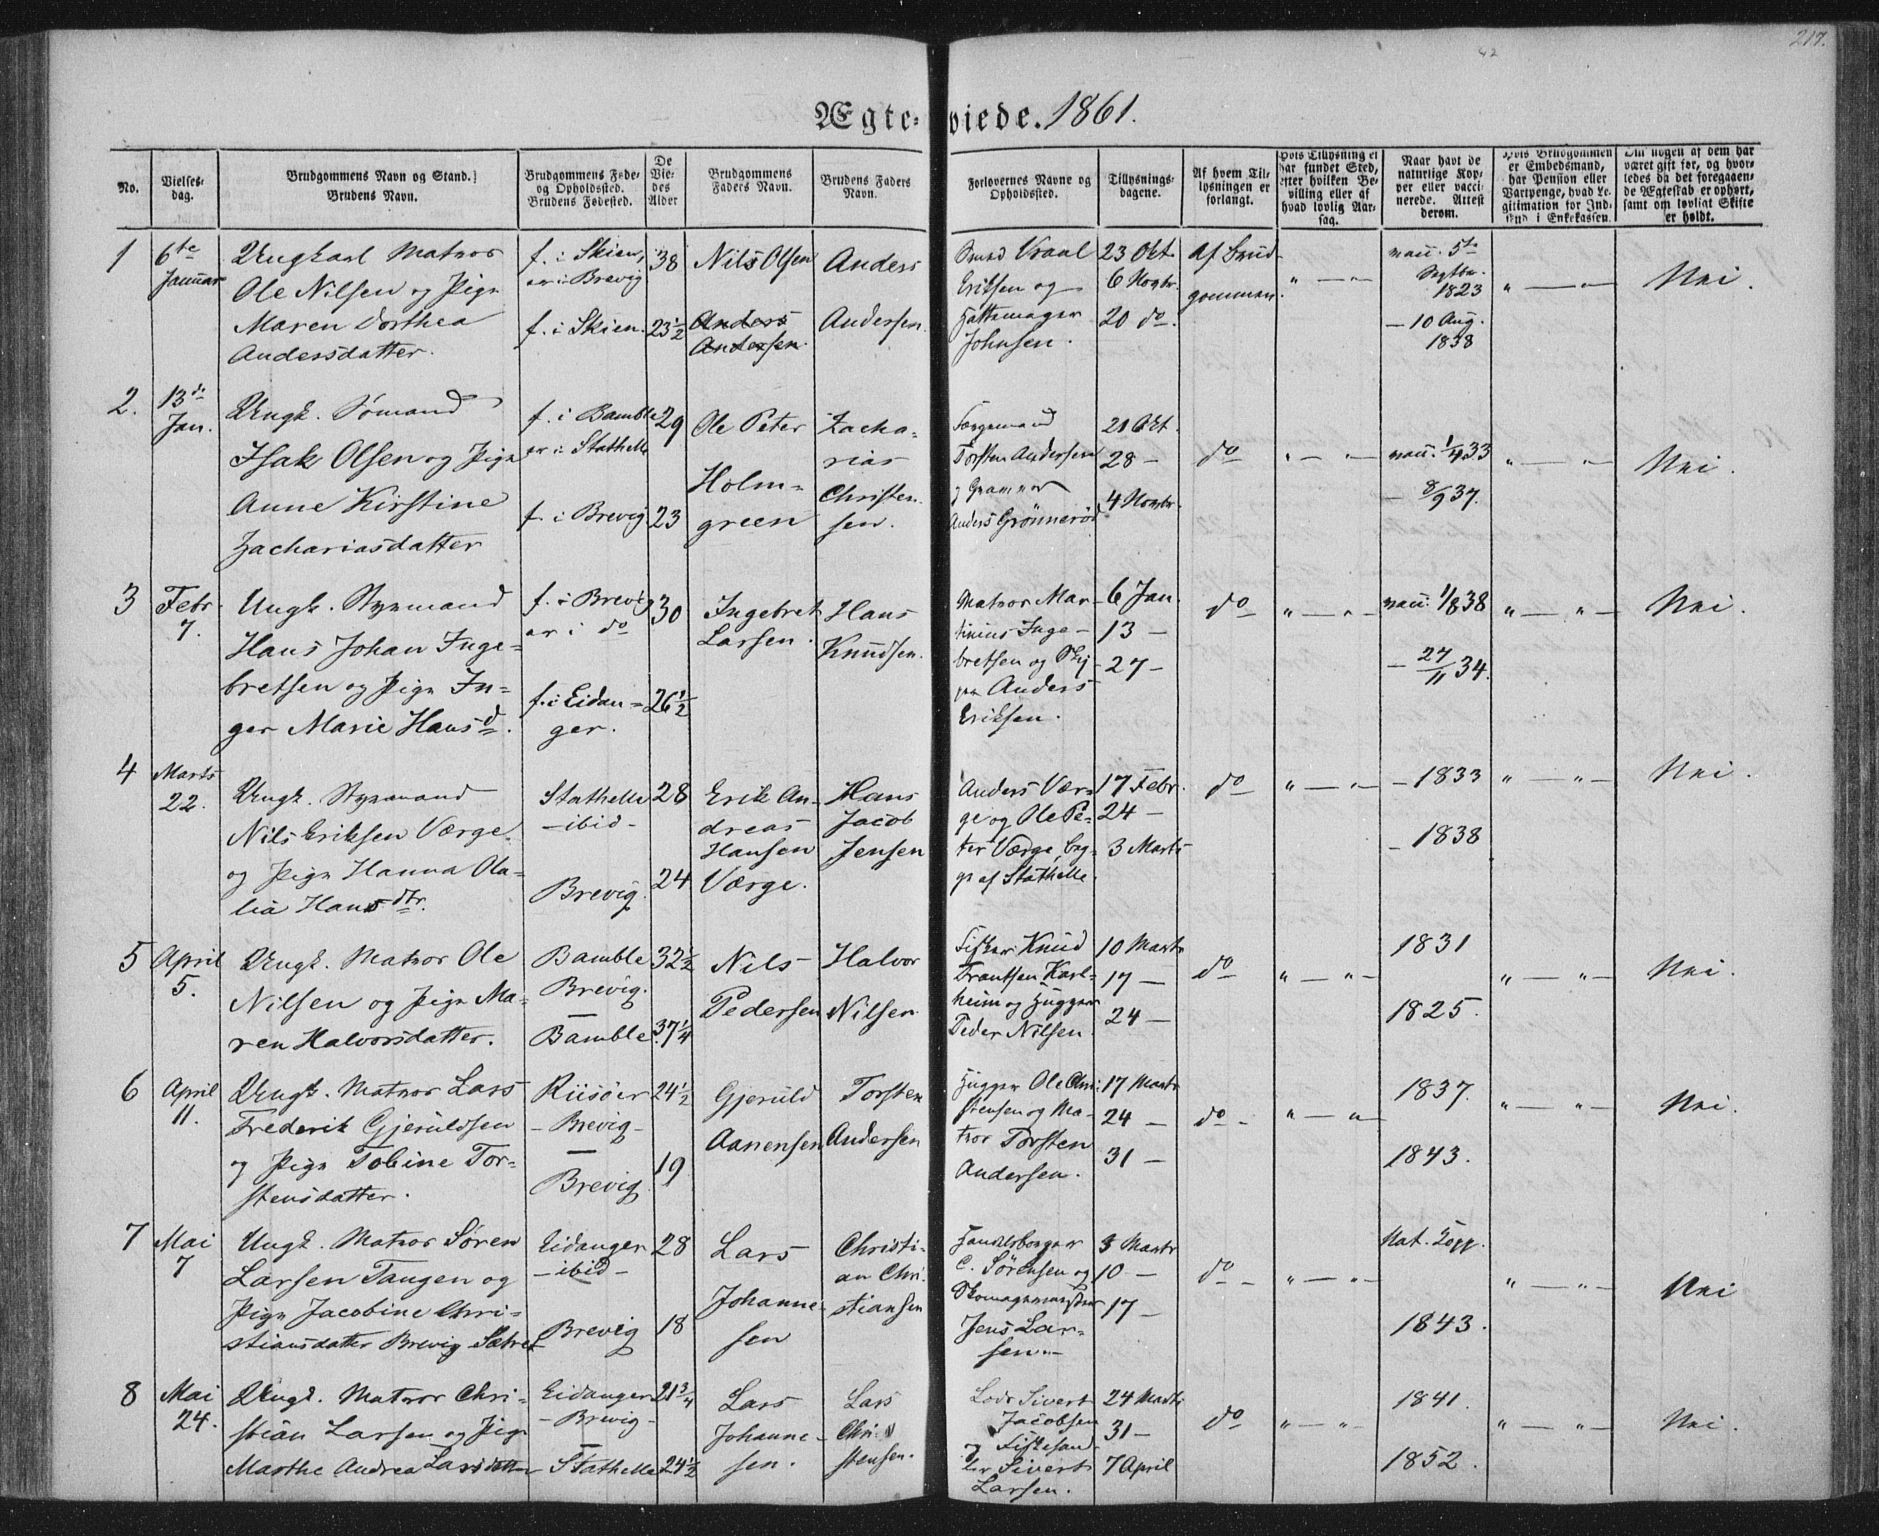 217.
Ægteviede. 1861.
No. | Vielses-dag. | Brudgommens Navn og Stand. Brudens Navn. | Brudgommens Føde- og Opholdsted. Brudens Fødested. | De Viedes Alder | Brudgommens Faders Navn. | Brudens Faders Navn. | Forlovernes Navne og Opholdsted. | Tillysnings-dagene. | Af hvem Tillysningen er forlangt. | Hvis Tillysning ei har fundet Sted, efter hvilken Bevilling eller af hvad lovlig Aarsag. | Naar havt de naturlige Kopper eller vaccinerede. Attest derom. | Hvis Brudgommen er Embedsmand, har Pension eller Vartpenge, hvad Legitimation for Indskud i Enkekassen. | Om nogen af dem har været gift før, og hvorledes da det foregaaende Ægteskab er ophørt, samt om lovligt Skifte er holdt.
1 | 6te Januar | Ungkarl Matros | f. i Skien, | 38 | Nils Olsen | Anders | Vraal | 23 Okt. | Af Brud-
Ole Nilsen og Pige | er i Brevig | Eriksen og | 6 Novbr. | gommen. | " — " — | vacc. 5te Septbr. 1823 | " — " — | Nei.
Maren Dorthea | f. i Skien. | 23½ | Anders | Andersen. | Hattemager | 20 do. | — 10 Aug.
Andersdatter. | Andersen. | Johnsen. | 1838
2. | 13de Jan. | Ungk. Sømand | f. i Bamble | 29 | Ole Peter | Zacha- | 21 Okt.
Isak Olsen og Pige | er i Stathelle | rias | Torsten Andersen | 28 — | do | " — " — | vacc. 1/4 33 | " — " — | Nei.
Anne Kirstine | f. i Brevig | 23 | Holm- | Christen- | og | 4 Novbr. | — 8/9 37.
Zachariasdatter | green | sen. | Anders Grønnerød
3 | Febr 7. | Ungk. Styrmand | f. i Brevig | 30 | Ingebret | Hans | Matros Mar- | 6 Jan. | do | " — " — | vacc. 1/8 38 | " — " — | Nei.
Hans Johan Inge- | er i do | Larsen. | Knudsen. | tinius Inge- | 13 —
bretsen og Pige In- | f. i Eidan- | 26½ | bretsen og Skip- | 27 — | — 27/11 34.
ger Marie Hansd. | ger. | per Anders
Eriksen.
4 | Marts 22. | Ungk. Styrmand | Stathelle | 28 | Erik An- | Hans | Anders Vær- | 17 Febr. | do | " — " — | — 1833 | " — " — | Nei.
Nils Eriksen Værge | — ibid — | dreas | Jacob | ge og Ole Pe- | 24 —
og Pige Hanna Ola- | Hansen | Jensen | ter Værge, beg- | 3 Marts | — 1838
lia Hansdtr. | Brevig. | 24 | Værge. | ge af Stathelle.
5 | April 5. | Ungk. Matros Ole | Bamble | 32½ | Nils | Halvor | Fisker Knud | 10 Marts | do | " — " — | 1831 | " — " — | Nei.
Nilsen og Pige Ma- | Brevig. | Pedersen | Nilsen | Frantsen Karl- | 17 —
ren Halvorsdatter. | Bamble | 37¼ | heim og Hugger | 24 — | 1825.
Peder Nilsen
6 | April 11. | Ungk. Matros Lars | Riisøer | 24½ | Gjeruld | Torsten | Hugger Ole Chri- | 17 Marts | do - | " — " — | 1837. | " — " — | Nei.
Frederik Gjeruldsen | — Brevig — | Aanensen | Andersen | stensen og Ma- | 24 —
og Pige Tobine Tor- | Brevig. | 19 | tros Torsten | 31 — | 1843.
stensdatter. | Andersen.
7 | Mai 7 | Ungk. Matros Søren | Eidanger | 28 | Lars | Christi- | Handelsborger | 3 Marts | Nat. Kopp.
Larsen Tangen og | — ibid — | an Chri- | C. Sørensen og | 10 — | do - | " — " — | " — " — | Nei
Pige Jacobine Chri- | Brevig | 18 | Johanne- | stiansen | Skomagermester | 17 —
stiansdatter Brevig | sen | Jens Lar- | 1843.
sen. —
8 | Mai 24. | Ungk. Matros Chri- | Eidanger | 21¾ | Lars | Lars | Lods Sivert | 24 Marts | 1841.
stian Larsen og Pige | — Brevig — | Johanne- | Chri- | Jacobsen | 31 — | do | " — " — | " — " — | Nei.
Marthe Andrea Larsdatter | Stathelle | 24½ | sen. | stensen. | og Sivert | 7 April | 1852.
Larsen.